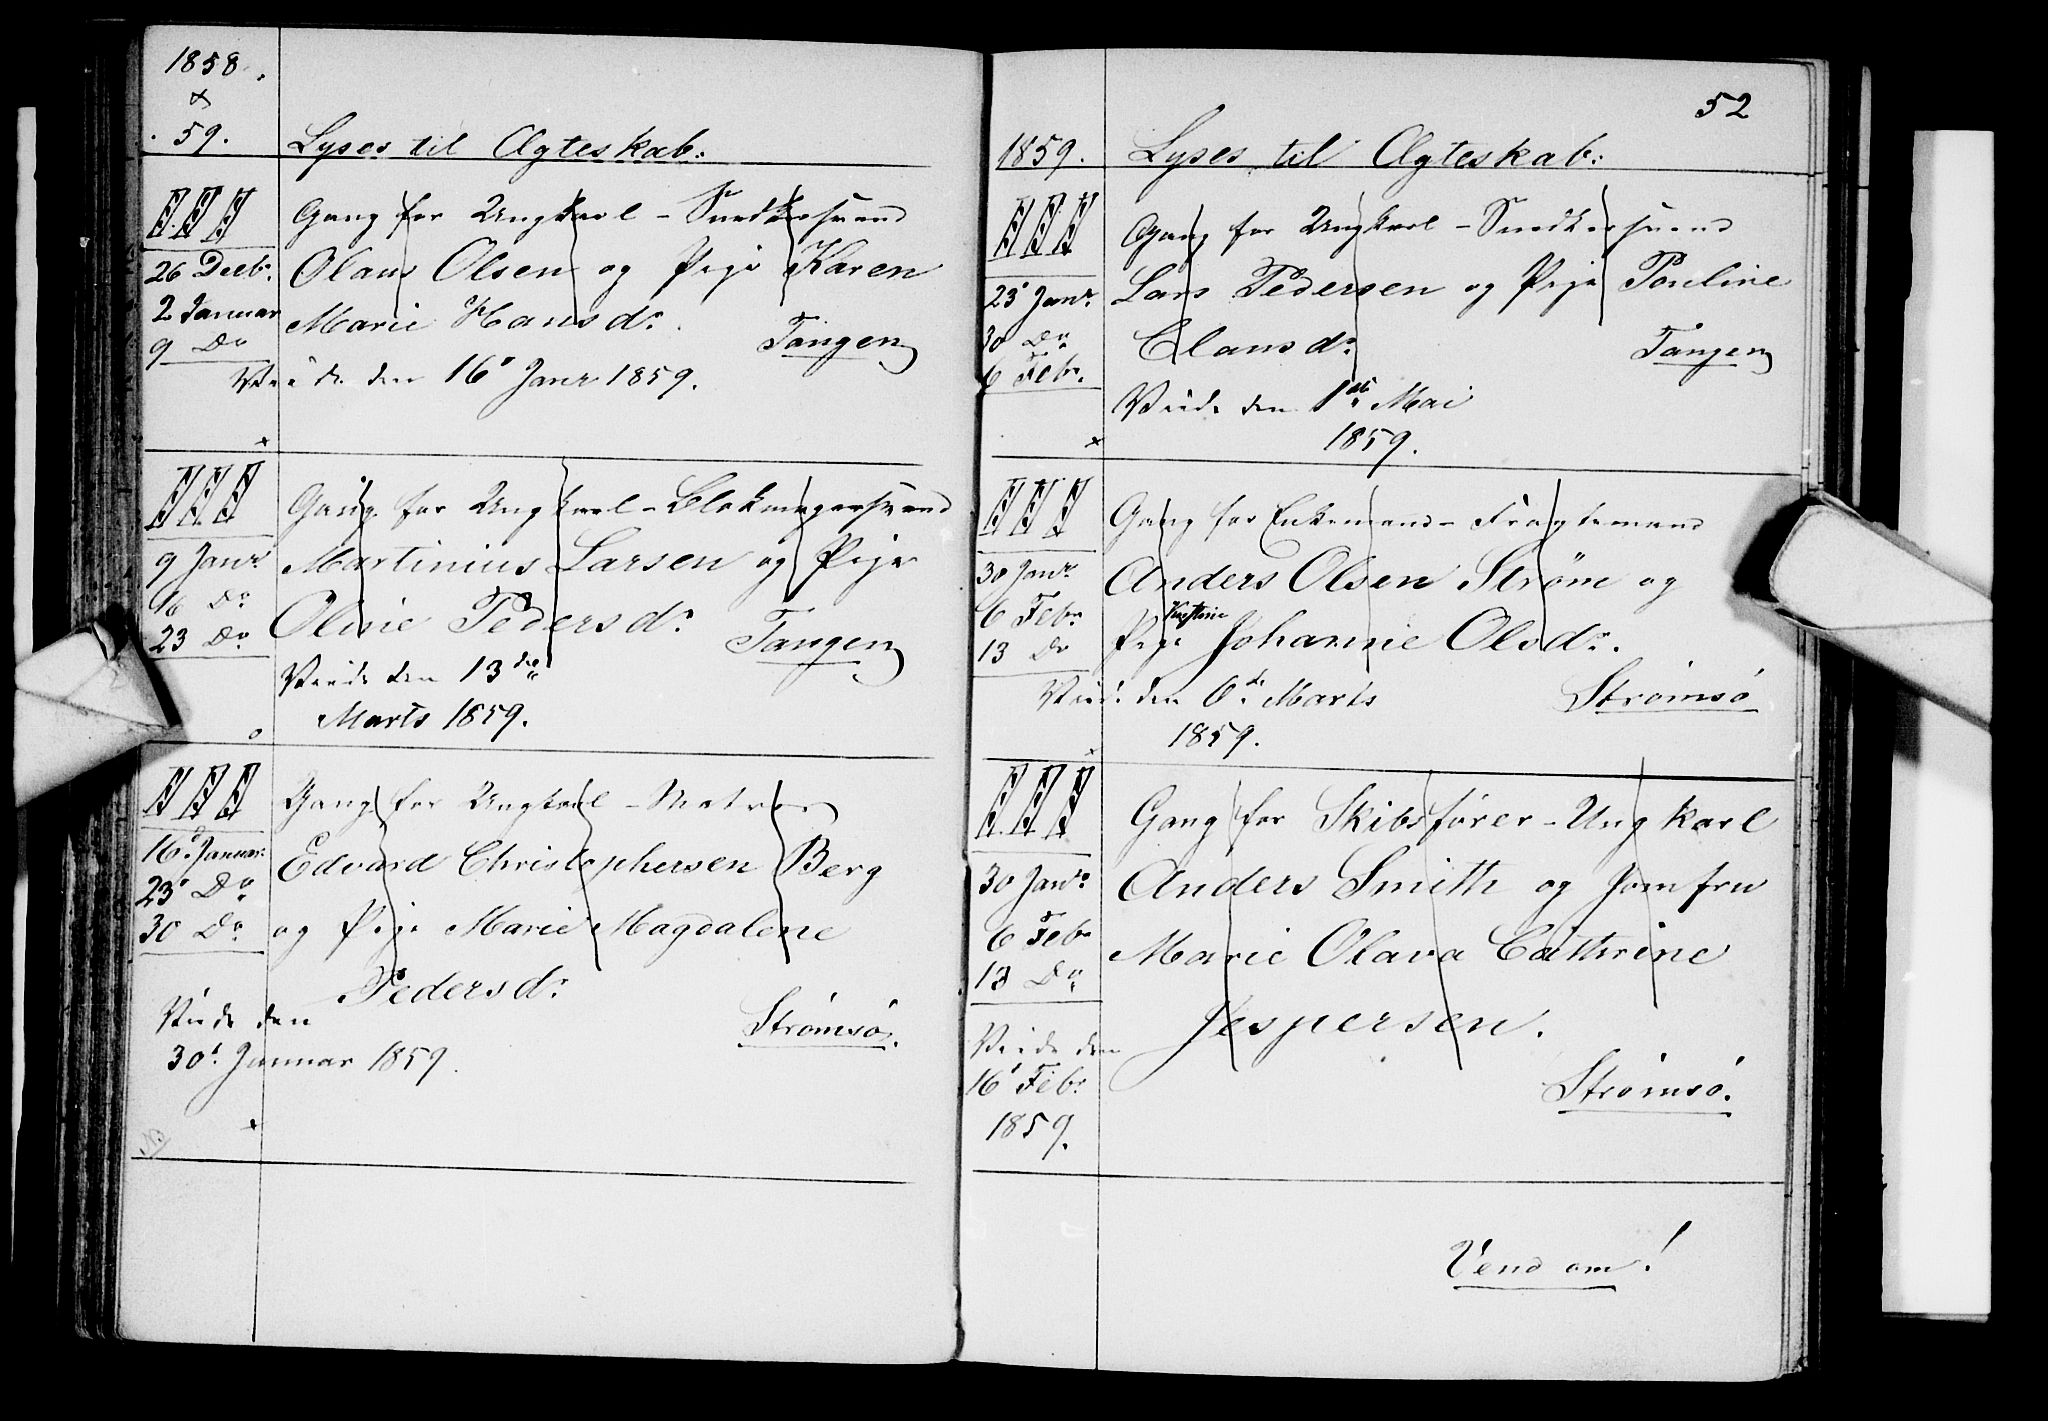 1858.
&
59.
Lyses til Ægteskab:
III
Gang for Ungkarl - Snedkersvend
26 Decbr.
Olaus Olsen og Pige Karen
2 Januar
Marie Hansdr.
9 Do
Tangen
Viede den 16' Janr 1859.
III
Gang for Ungkarl - Blokmagersvend
9 Janr.
Martinius Larsen og Pige
16 Do
Oline Pedersdr.
23 Do
Tangen
Viede den 13de
Marts 1859.
III
Gang for Ungkarl - Matros
16' Januar
Edvard Christophersen Berg
23' Do
og Pige Marie Magdalene
30 Do
Pedersdr.
Viede den
Strømsø.
30' Januar 1859.
52
1859.
Lyses til Ægteskab:
III
Gang for Ungkarl - Snedkersvend
23' Janr.
Lars Pedersen og Pige Pauline
30 Do
Clausdr.
Tangen
6 Febr.
Viede den 1ste Mai
1859.
III
Gang for Enkemand - Fragtemand
30 Janr.
Anders Olsen Strøm og
6 Febr.
Pige Johanne Olsdr.
13 Do
Viede den 6te Marts
Strømsø
1859.
III
Gang for Skibsfører - Ungkarl
30 Janr.
Anders Smith og Jomfru
6 Febr
Marie Olava Cathrine
13 Do
Jespersen.
Viede den
16' Febr.
Strømsø.
1859.
Vend om!